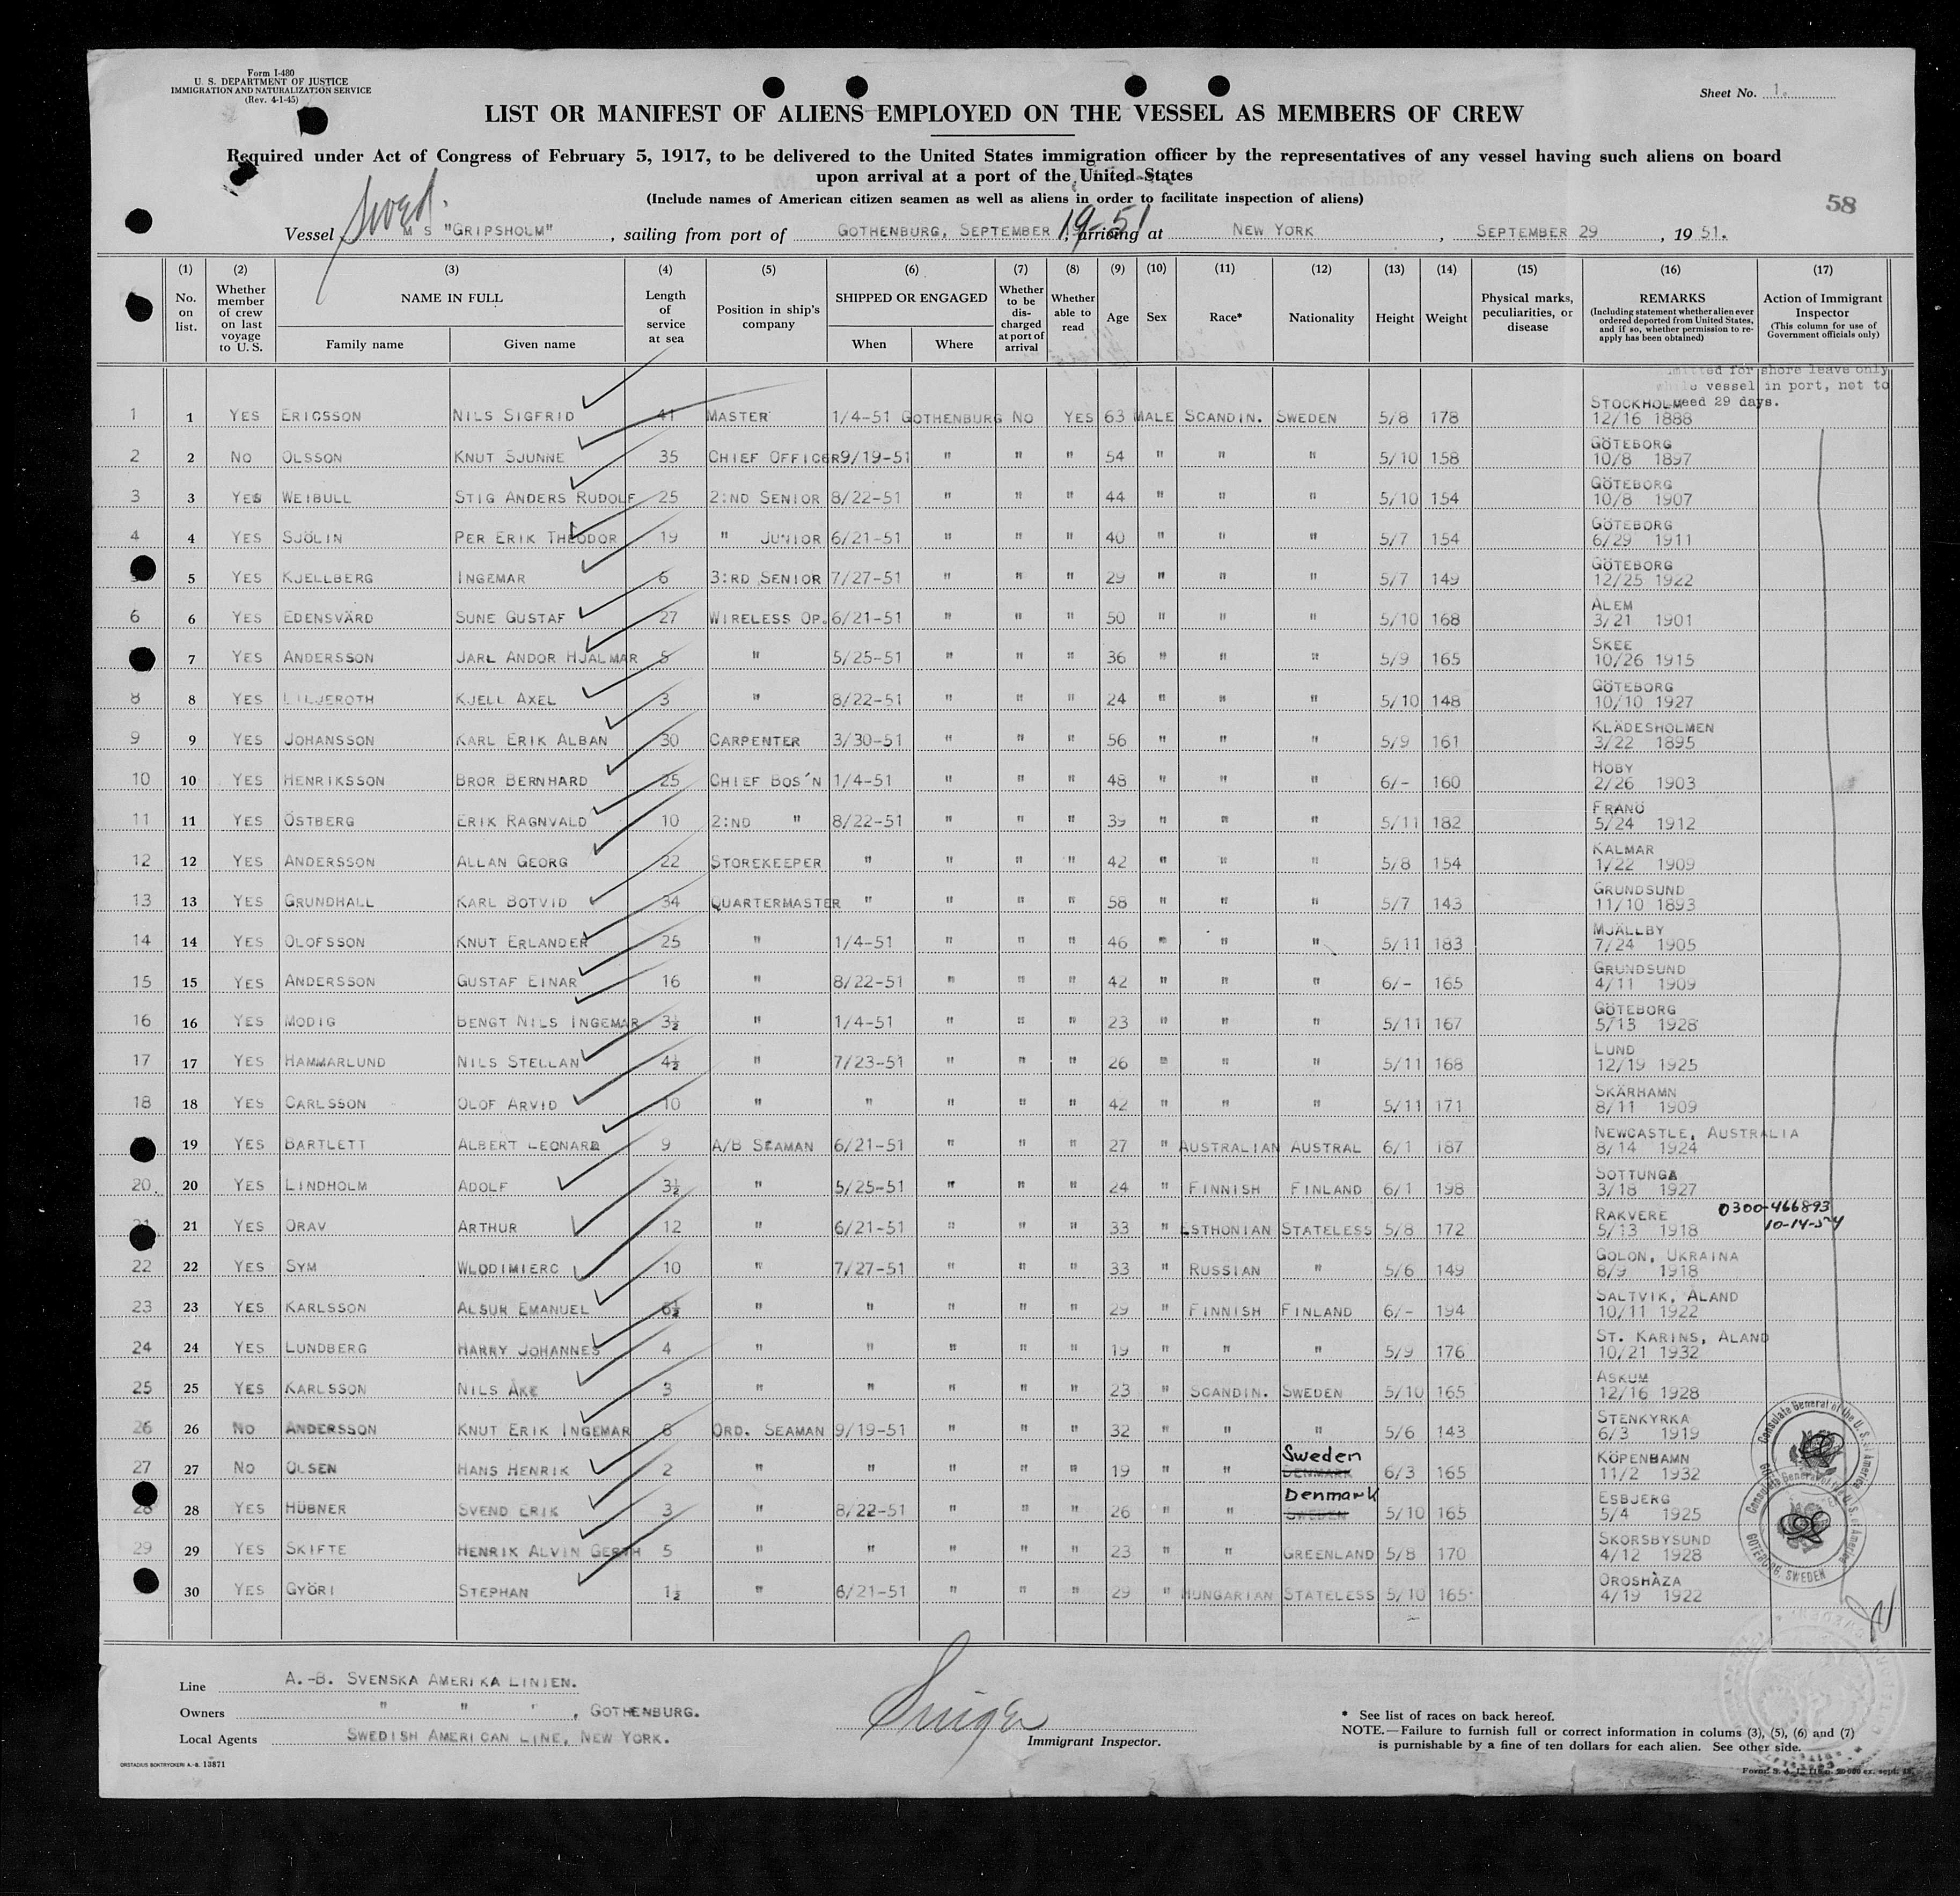 Form I-480
U. S. DEPARTMENT OF JUSTICE
IMMIGRATION AND NATURALIZATION SERVICE
(Rev. 4-1-45)
Sheet No. 1.
LIST OR MANIFEST OF ALIENS EMPLOYED ON THE VESSEL AS MEMBERS OF CREW
Required under Act of Congress of February 5, 1917, to be delivered to the United States immigration officer by the representatives of any vessel having such aliens on board
upon arrival at a port of the United States
(Include names of American citizen seamen as well as aliens in order to facilitate inspection of aliens)
58
Swed.
Vessel M S "GRIPSHOLM", sailing from port of GOTHENBURG, SEPTEMBER 19-51, arriving at NEW YORK, SEPTEMBER 29, 1951.
(1) (2) (3) (4) (5) (6) (7) (8) (9) (10) (11) (12) (13) (14) (15) (16) (17)
No. on list. Whether member of crew on last voyage to U. S. NAME IN FULL Family name Given name Length of service at sea Position in ship's company SHIPPED OR ENGAGED When Where Whether to be discharged at port of arrival Whether able to read Age Sex Race* Nationality Height Weight Physical marks, peculiarities, or disease REMARKS (Including statement whether alien ever ordered deported from United States, and if so, whether permission to reapply has been obtained) Action of Immigrant Inspector (This column for use of Government officials only)
for shore leave only
vessel in port, not to
29 days.
1 1 YES ERICSSON NILS SIGFRID 41 MASTER 1/4-51 GOTHENBURG NO YES 63 MALE SCANDIN. SWEDEN 5/8 178 STOCKHOLM 12/16 1888
2 2 NO OLSSON KNUT SJUNNE 35 CHIEF OFFICER 9/19-51 " " " 54 " " " 5/10 158 GÖTEBORG 10/8 1897
3 3 YES WEIBULL STIG ANDERS RUDOLF 25 2:ND SENIOR 8/22-51 " " " 44 " " " 5/10 154 GÖTEBORG 10/8 1907
4 4 YES SJÖLIN PER ERIK THEODOR 19 " JUNIOR 6/21-51 " " " 40 " " " 5/7 154 GÖTEBORG 6/29 1911
5 YES KJELLBERG INGEMAR 6 3:RD SENIOR 7/27-51 " " " 29 " " " 5/7 149 GÖTEBORG 12/25 1922
6 6 YES EDENSVÄRD SUNE GUSTAF 27 WIRELESS OP. 6/21-51 " " " 50 " " " 5/10 168 ALEM 3/21 1901
7 YES ANDERSSON JARL ANDOR HJALMAR 5 " 5/25-51 " " " 36 " " " 5/9 165 SKEE 10/26 1915
8 8 YES LILJEROTH KJELL AXEL 3 " 8/22-51 " " " 24 " " " 5/10 148 GÖTEBORG 10/10 1927
9 9 YES JOHANSSON KARL ERIK ALBAN 30 CARPENTER 3/30-51 " " " 56 " " " 5/9 161 KLÄDESHOLMEN 3/22 1895
10 10 YES HENRIKSSON BROR BERNHARD 25 CHIEF BOS'N 1/4-51 " " " 48 " " " 6/- 160 HOBY 2/26 1903
11 11 YES ÖSTBERG ERIK RAGNVALD 10 2:ND " 8/22-51 " " " 39 " " " 5/11 182 FRANÖ 5/24 1912
12 12 YES ANDERSSON ALLAN GEORG 22 STOREKEEPER " " " " 42 " " " 5/8 154 KALMAR 1/22 1909
13 13 YES GRUNDHALL KARL BOTVID 34 QUARTERMASTER " " " " 58 " " " 5/7 143 GRUNDSUND 11/10 1893
14 14 YES OLOFSSON KNUT ERLANDER 25 " 1/4-51 " " " 46 " " " 5/11 183 MJÄLLBY 7/24 1905
15 15 YES ANDERSSON GUSTAF EINAR 16 " 8/22-51 " " " 42 " " " 6/- 165 GRUNDSUND 4/11 1909
16 16 YES MODIG BENGT NILS INGEMAR 3½ " 1/4-51 " " " 23 " " " 5/11 167 GÖTEBORG 5/13 1928
17 17 YES HAMMARLUND NILS STELLAN 4½ " 7/23-51 " " " 26 " " " 5/11 168 LUND 12/19 1925
18 18 YES CARLSSON OLOF ARVID 10 " " " " " 42 " " " 5/11 171 SKÄRHAMN 8/11 1909
19 YES BARTLETT ALBERT LEONARD 9 A/B SEAMAN 6/21-51 " " " 27 " AUSTRALIAN AUSTRAL 6/1 187 NEWCASTLE, AUSTRALIA 8/14 1924
20. 20 YES LINDHOLM ADOLF 3½ " 5/25-51 " " " 24 " FINNISH FINLAND 6/1 198 SOTTUNGA 3/18 1927
21 21 YES ORAV ARTHUR 12 " 6/21-51 " " " 33 " ESTHONIAN STATELESS 5/8 172 RAKVERE 5/13 1918 0300-466893 10-14-54
22 22 YES SYM WLODIMIERC 10 " 7/27-51 " " " 33 " RUSSIAN " 5/6 149 GOLON, UKRAINA 8/9 1918
23 23 YES KARLSSON ALSUR EMANUEL 6½ " " " " " 29 " FINNISH FINLAND 6/- 194 SALTVIK, ÅLAND 10/11 1922
24 24 YES LUNDBERG HARRY JOHANNES 4 " " " " " 19 " " " 5/9 176 ST. KARINS, ALAND 10/21 1932
25 25 YES KARLSSON NILS ÅKE 3 " " " " " 23 " SCANDIN. SWEDEN 5/10 165 ASKUM 12/16 1928
26 26 NO ANDERSSON KNUT ERIK INGEMAR 6 ORD. SEAMAN 9/19-51 " " " 32 " " " 5/6 143 STENKYRKA 6/3 1919
27 27 NO OLSEN HANS HENRIK 2 " " " " " 19 " " DENMARK Sweden 6/3 165 KÖPENHAMN 11/2 1932
28 28 YES HÜBNER SVEND ERIK 3 " 8/22-51 " " " 26 " " SWEDEN Denmark 5/10 165 ESBJERG 5/4 1925
29 29 YES SKIFTE HENRIK ALVIN GERTH 5 " " " " " 23 " " GREENLAND 5/8 170 SKORSBYSUND 4/12 1928
30 YES GYÖRI STEPHAN 1½ " 6/21-51 " " " 29 " HUNGARIAN STATELESS 5/10 165 OROSHÀZA 4/19 1922
Consulate General of the U. S. of America
GOTEBORG, SWEDEN
Line A.-B. SVENSKA AMERIKA LINIEN.
Owners " " " , GOTHENBURG.
Local Agents SWEDISH AMERICAN LINE, NEW YORK.
Immigrant Inspector.
* See list of races on back hereof.
NOTE.—Failure to furnish full or correct information in colums (3), (5), (6) and (7)
is purnishable by a fine of ten dollars for each alien. See other side.
ORSTADIUS BOKTRYCKERI A.-B. 13871